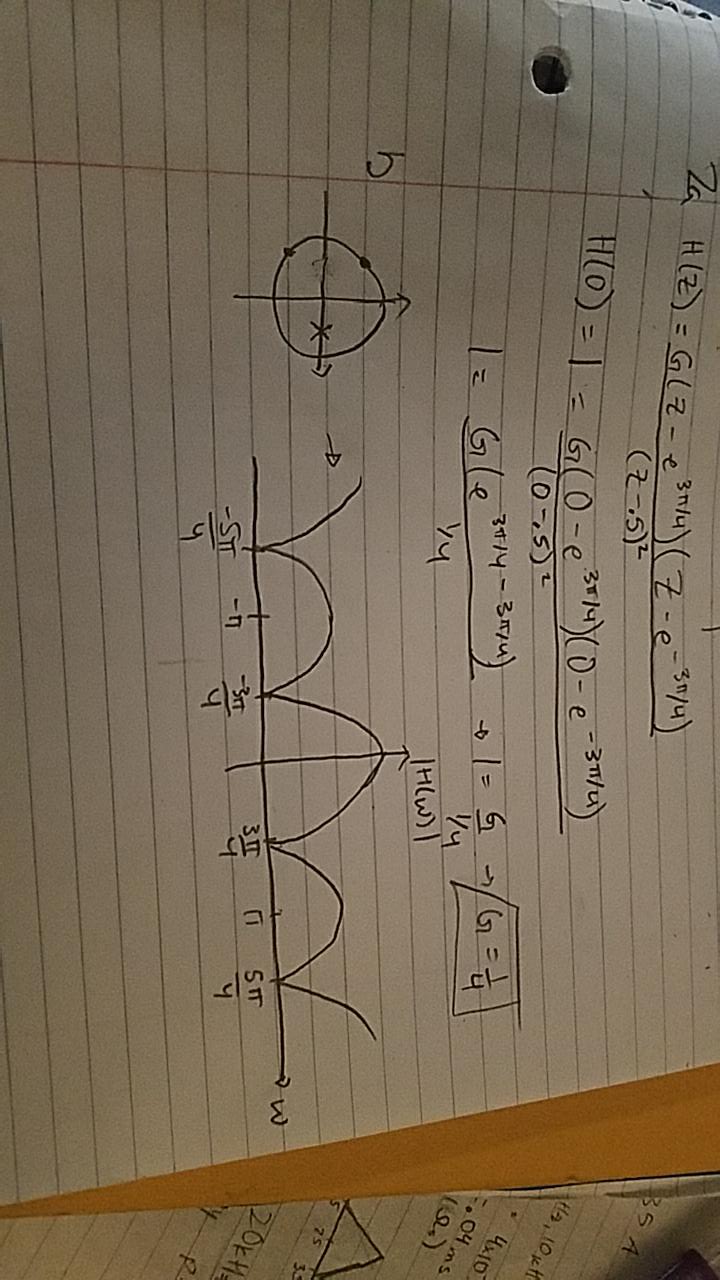 2a H(z) = G(z - e^{3π/4})(z - e^{-3π/4})
(z-.5)²
H(0) = 1 = G(0 - e^{3π/4})(0 - e^{-3π/4})
(0-.5)²
1 = G(e^{3π/4 - 3π/4}) → 1 = G → G = 1/4
1/4 1/4
b → |H(w)|
-5π/4 -π -3π/4 3π/4 π 5π/4 w
3S A
Hz, 10kH
4x10
=.04 ms
25
20kH